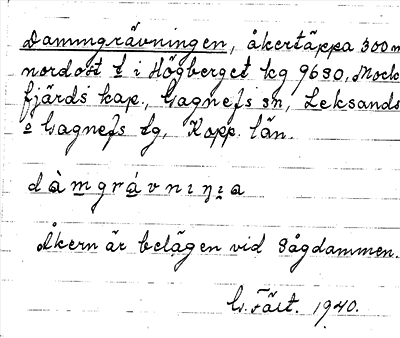 Dammgrävningen, åkertäppa 300 m
nordost t i Högberget kg 9630, Mock
fjärds kap., Gagnefs sn, Leksands
o Gagnefs tg, Kopp. län.
dàmgrávnıŋıa
Åkern är belägen vid Sågdammen.
G. Fält. 1940.